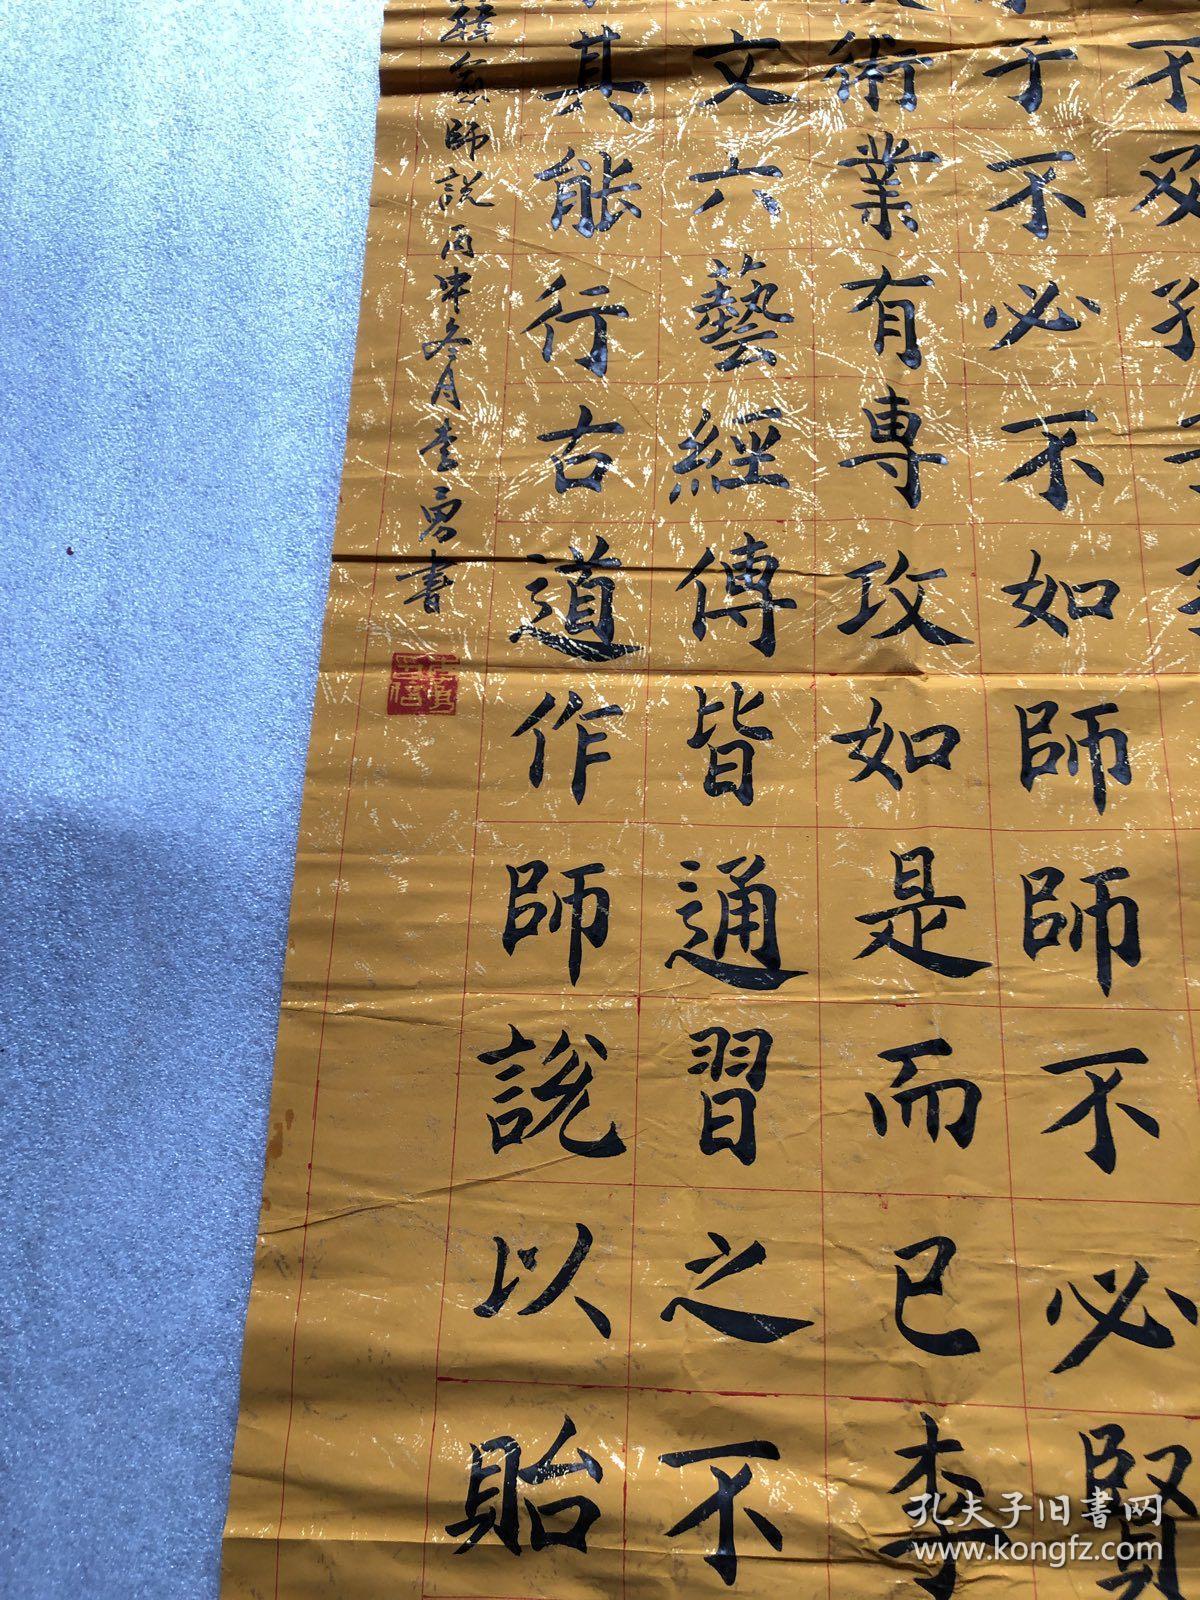 不
子不必不如師師不必賢
術業有專攻如是而已李
文六藝經傳皆通習之不
其能行古道作師說以貽
韓愈師說丙申冬月李勇書
孔夫子旧书网
www.kongfz.com